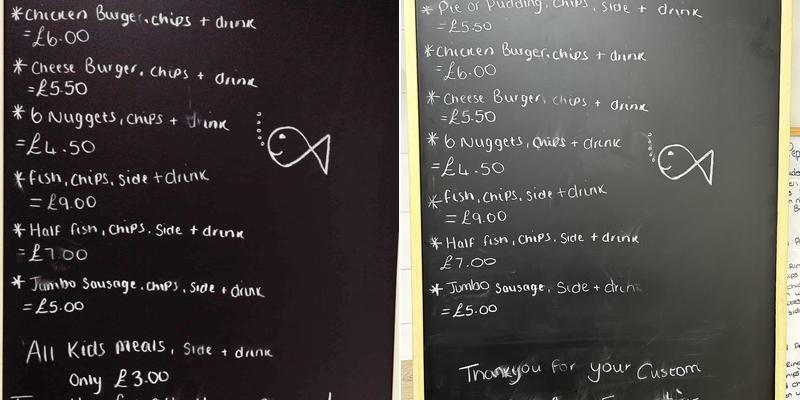 *Chicken Burger, chips + drink
=£6.00
* Cheese Burger, chips + drink
=£5.50
* 6 Nuggets, chips + drink
=£4.50
* fish, chips, side + drink
= £9.00
* Half fish, chips. Side + drink
=£7.00
* Jumbo Sausage. chips, Side + drink
=£5.00
All Kids meals, side + drink
Only £3.00
* Pie or Pudding, chips, side + drink
=£5.50
*Chicken Burger, chips + drink
=£6.00
* Cheese Burger, chips + drink
=£5.50
* 6 Nuggets, chips + drink
=£4.50
*fish, chips, side + drink
= £9.00
* Half fish, chips. Side + drink
£7.00
* Jumbo Sausage, Side + drink
=£5.00
Thankyou for your Custom